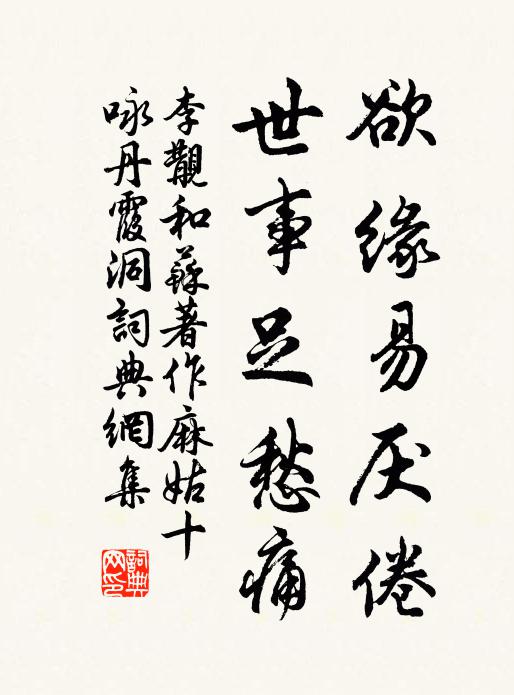 欲缘易厌倦
世事足愁痛
李觀和蘇著作麻姑十
咏丹霞洞詞典網集
詞典
网印